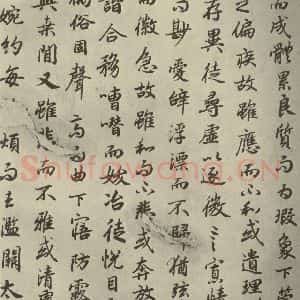 而成體累良質而為瑕象下管
之偏疾故雖應而不和或遺理
存異徒尋虛以逐微言寡情
而尠愛辭浮漂而不歸猶絃
而徽急故雖和而不悲或奔放
諧合務嘈囋而妖冶徒悅目
偶俗固聲高而曲下寤防露
與桑間又雖悲而不雅或清
婉約每煩而去濫闕大
Shufawang.CN